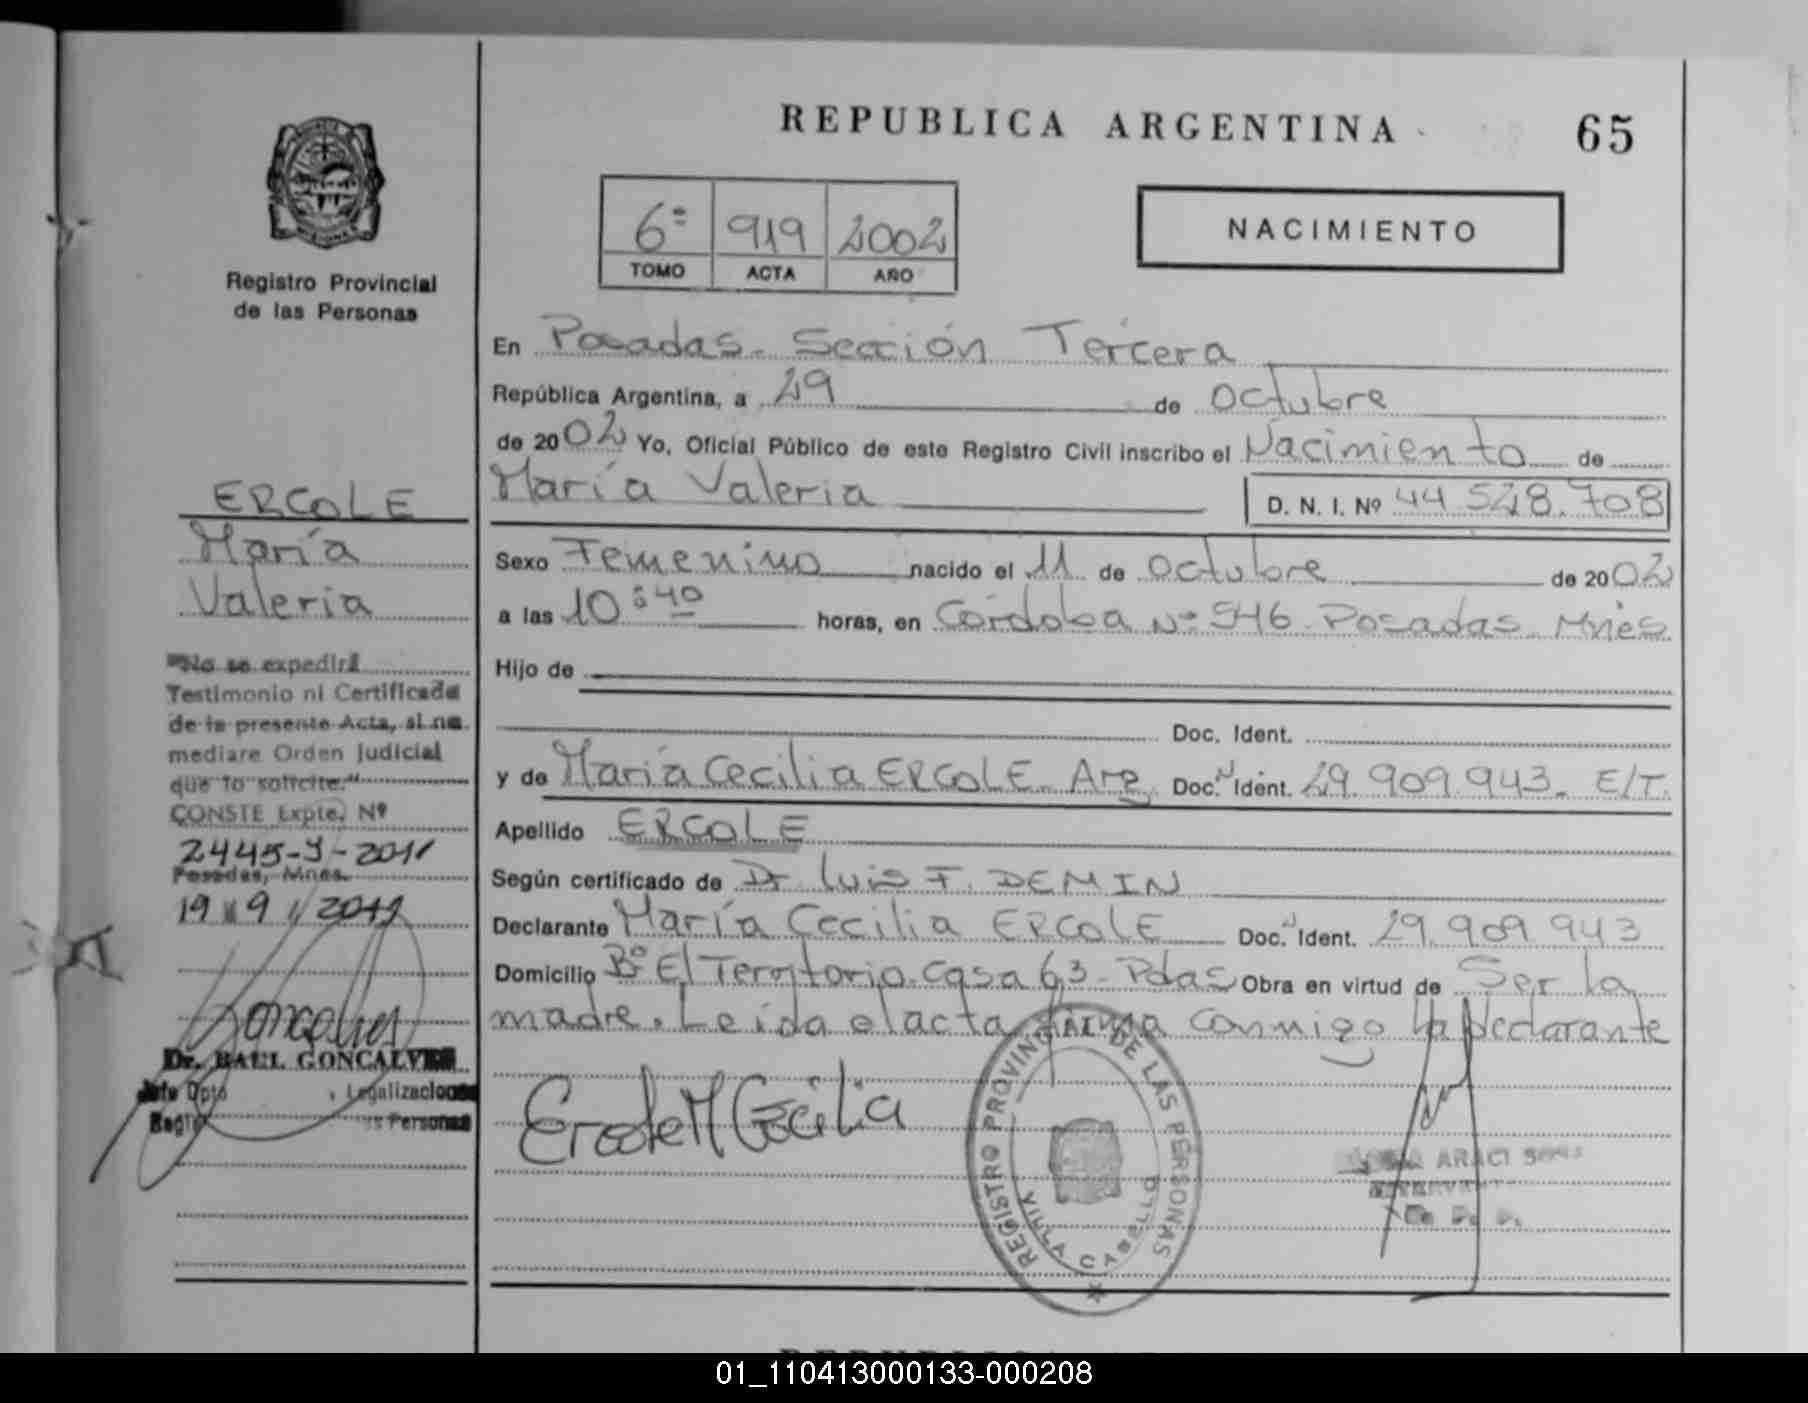 REPUBLICA ARGENTINA
65
6º 919 2002
TOMO ACTA AÑO
NACIMIENTO
Registro Provincial
de las Personas
ERCOLE
María
Valeria
"No se expedirá
Testimonio ni Certificado
de la presente Acta, si no
mediare Orden Judicial
que lo solicite."
CONSTE Expte. Nº
2445-Y-2011
Posadas, Mnes.
19 9 2011
Dr. RAUL GONCALVES
Jefe Dpto Legalizaciones
Personas
En Posadas. Sección Tercera
República Argentina, a 29 de Octubre
de 2002 Yo, Oficial Público de este Registro Civil inscribo el Nacimiento de
María Valeria D. N. I. Nº 44.528.708
Sexo Femenino nacido el 11 de octubre de 2002
a las 10:40 horas, en Córdoba Nº 946 Posadas Mnes
Hijo de
Doc. Ident.
y de María Cecilia ERCOLE Arg. Doc. N Ident. 29.909.943. E/T.
Apellido ERCOLE
Según certificado de Dr Luis F. DEMIN
Declarante María Cecilia ERCOLE Doc. N Ident. 29.909.943
Domicilio Bº El Territorio. casa 63 - Pdas Obra en virtud de Ser la
madre. Leída el acta firma conmigo la declarante
Ercole M Cecilia
REGISTRO PROVINCIAL DE LAS PERSONAS
VILLA CABELLO
ARACI
01_110413000133-000208